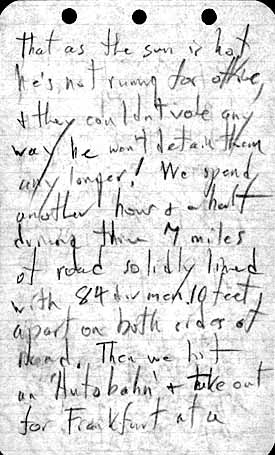 that as the sun is hot
he's not runing for office,
& they couldn't vote any
way he won't detain them
any longer! We spend
another hour & a half
driving thru 7 miles
of road solidly lined
with 84 div men, 10 feet
apart on both sides of
road. Then we hit
an 'Autobahn' & take out
for Frankfurt at a